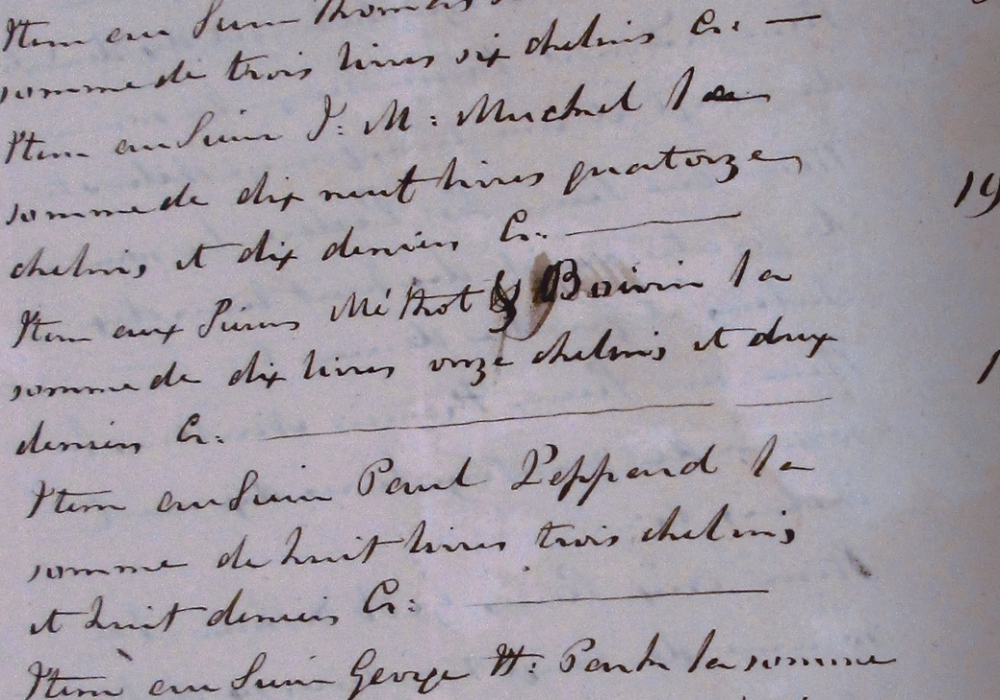 Item au Sieur Thomas
somme de trois livres six chelins Cr: —
Item au Sieur J: M: Muckel la
somme de dix neuf livres quatorze
19
chelins et dix deniers Cr: —
Item aux Sieurs Méthot & Boivin la
somme de dix livres onze chelins et deux
deniers Cr: —
Item au Sieur Paul Peppard la
somme de huit livres trois chelins
et huit deniers Cr: —
Item au Sieur George H: Parke la somme